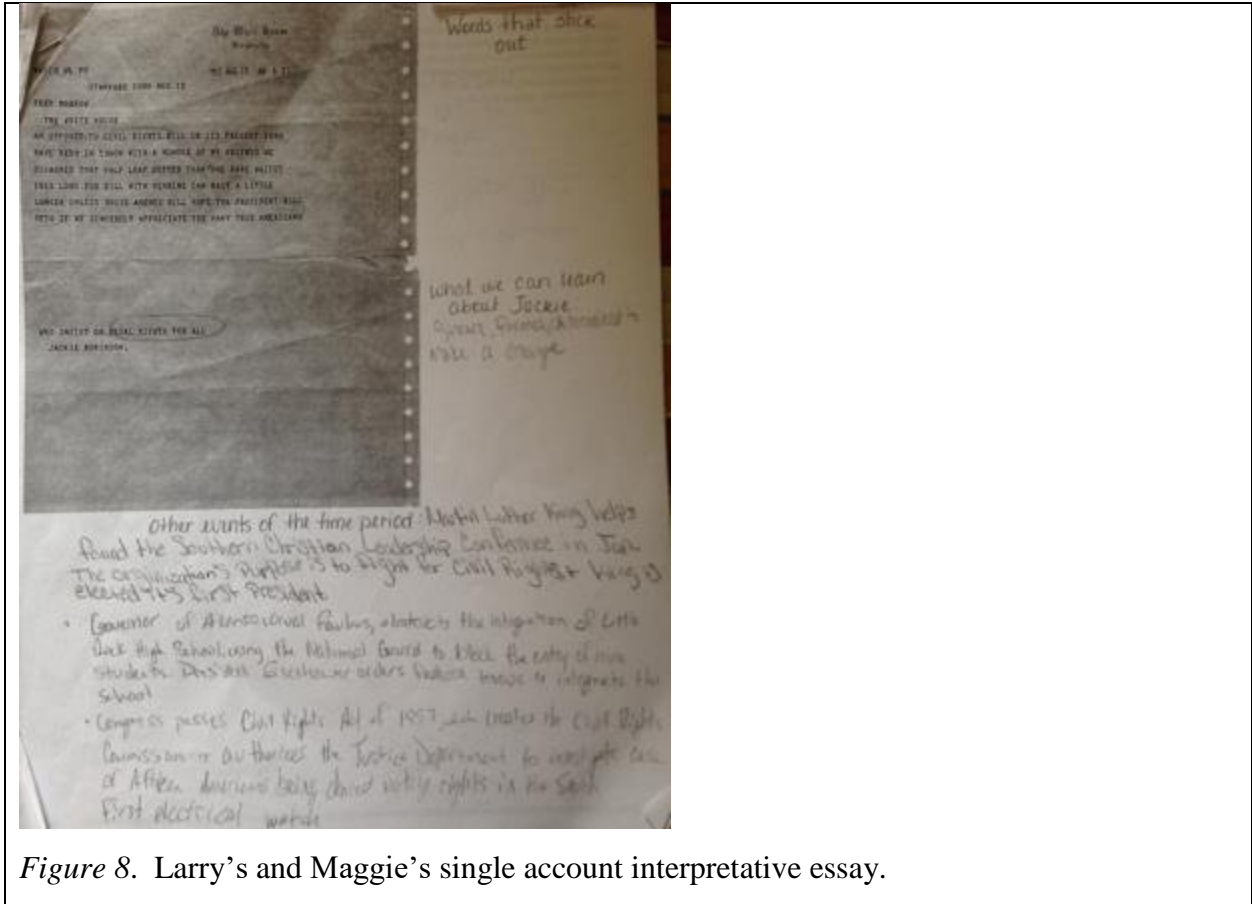 The White House
Washington
STAMFORD CONN AUG 12
FRED MORROW
THE WHITE HOUSE
AM OPPOSED TO CIVIL RIGHTS BILL IN ITS PRESENT FORM
HAVE BEEN IN TOUCH WITH A NUMBER OF MY FRIENDS WE
DISAGREE THAT HALF LOAF BETTER THAN NONE HAVE WAITED
THIS LONG FOR BILL WITH MEANING CAN WAIT A LITTLE
LONGER UNLESS HOUSE AMENDS BILL HOPE THE PRESIDENT WILL
VETO IT WE SINCERELY APPRECIATE THE MANY TRUE AMERICANS
WHO INSIST ON EQUAL RIGHTS FOR ALL
JACKIE ROBINSON.
Words that stick
out
what we can learn
about Jackie
make a change
Other events of the time period: Martin Luther King helps
found the Southern Christian Leadership Conference in Jan.
The organization's purpose is to fight for Civil Rights + King is
elected its first President
• Governor of Faubus, obstructs the integration of Little
Rock High School using the National Guard to block the entry of nine
students. President Eisenhower orders federal troops to integrate the
School
• Congress passes Civil Rights Act of 1957, creates the Civil Rights
Commission + authorizes the Justice Department to investigate case
of African Americans being denied voting rights in the South
First electrical watch
Figure 8. Larry's and Maggie's single account interpretative essay.